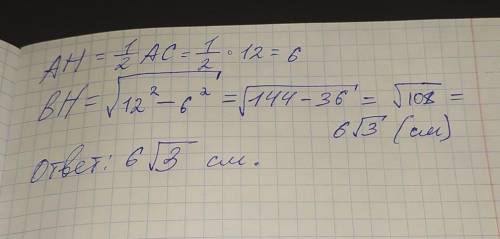 AH = 1/2 AC = 1/2 · 12 = 6
BH = √(12² − 6²) = √(144 − 36) = √108 =
6√3 (см)
Ответ: 6√3 см.